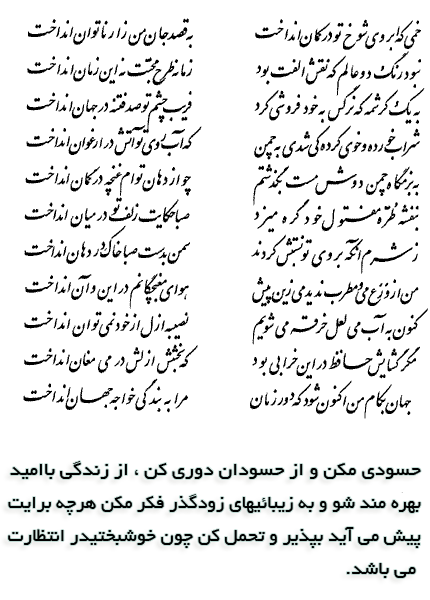 خمی که ابروی شوخ تو در کمان انداخت به قصد جان من زار ناتوان انداخت
نبود رنگ دو عالم که نقش الفت بود زمانه طرح محبت نه این زمان انداخت
به یک کرشمه که نرگس به خود فروشی کرد فریب چشم تو صد فتنه در جهان انداخت
شراب خورده و خوی کرده کی شدی به چمن که آب روی تو آتش در ارغوان انداخت
به بزمگاه چمن دوش مست بگذشتم چو از دهان توام غنچه در گمان انداخت
بنفشه طره مفتول خود گره میزد صبا حکایت زلف تو در میان انداخت
ز شرم آنکه بروی تو نسبتش کردند سمن بدست صبا خاک در دهان انداخت
من از ورع می و مطرب ندیدمی زین پیش هوای مغبچگانم در این و آن انداخت
کنون به آب می لعل خرقه می شویم نصیبه ازل از خود نمی توان انداخت
مگر گشایش حافظ در این خرابی بود که بخشش ازلش در می مغان انداخت
جهان بکام من اکنون شود که دور زمان مرا به بندگی خواجه جهان انداخت
حسودی مکن و از حسودان دوری کن ، از زندگی باامید
بهره مند شو و به زیبائیهای زودگذر فکر مکن هرچه برایت
پیش می آید بپذیر و تحمل کن چون خوشبختیدر انتظارت
می باشد.